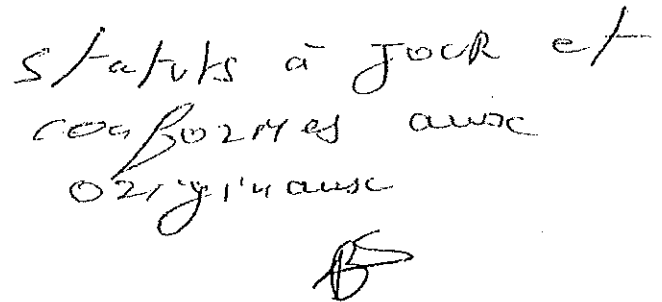 statuts à JOUR et
conformes aux
originaux